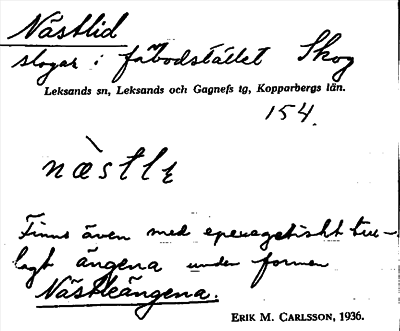 Nästlid
slogar i fäbodstället Skog
Leksands sn, Leksands och Gagnefs tg, Kopparbergs län.
154.
næ̀stlı
Finns även med epexegetiskt till-
lagt ängena under formen
Nästleängena.
ERIK M. CARLSSON, 1936.